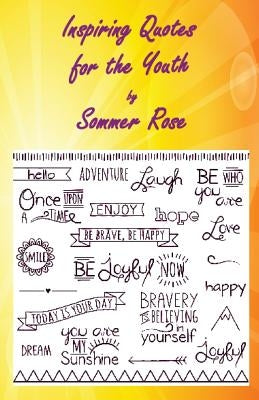 Inspiring Quotes
for the Youth
by
Sommer Rose
hello
ADVENTURE
Laugh
BE WHO
you
are
Once UPON
A TIME
ENJOY
hope
Love
BE BRAVE, BE HAPPY
SMILE
BE Joyful
NOW
happy
TODAY IS YOUR DAY
BRAVERY
IS BELIEVING
in
yourself
you are
MY
Sunshine
DREAM
Joyful